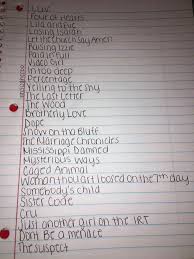 I Luv
Four of Hearts
Lila and Eve
Losing Isaiah
Let the Church Say Amen
Raising Izzie
Paid in Full
Video Girl
In too deep
Percentage
Yelling to the sky
The Last Letter
The Wood
Brotherly Love
Dope
Snow on tha Bluff
The Marriage Chronicles
Mississippi Damned
Mysterious Ways
Caged Animal
Woman thou art loosed on the 7th day
Somebody's child
Sister Code
Cru
Just another girl on the IRT
Don't Be a menace
The suspect